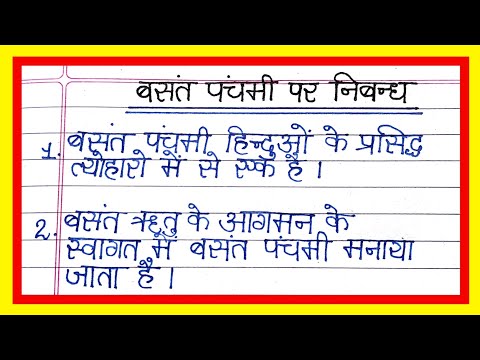 बसंत पंचमी पर निबन्ध
1. बसंत पंचमी हिन्दुओं के प्रसिद्ध
त्योहारो में से एक है।
2. बसंत ऋतु के आगमन के
स्वागत में बसंत पंचमी मनाया
जाता है।